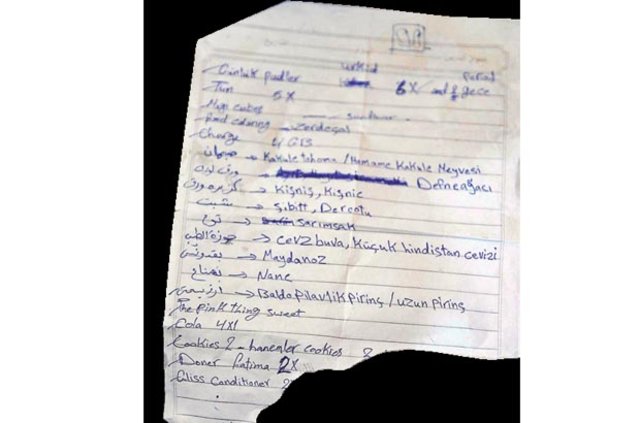 Günlük pudler urkid period
6X and 8 gece
Tun 5X
Magi cubes
food coloring zerdeçal
Charge 4 GB
هيل → Kakule tohumu / Hamame Kakule Meyvesi
ورق لورا → Defneağacı
گزبره ورق → Kişniş, Kişnic
شبت → şibitt, Derotu
توم → Sarımsak
جوزة الطيب → cevz buva, Küçuk hindistan cevizi
بقدونس → Maydanoz
نعناع → Nane
→ Baldo Pilavlik pirinç / uzun pirinç
The pink thing sweet
Cola 4X1
Cookies 2 - hanealer cookies 8
Doner Fatima 2X
Gliss Conditioner 2